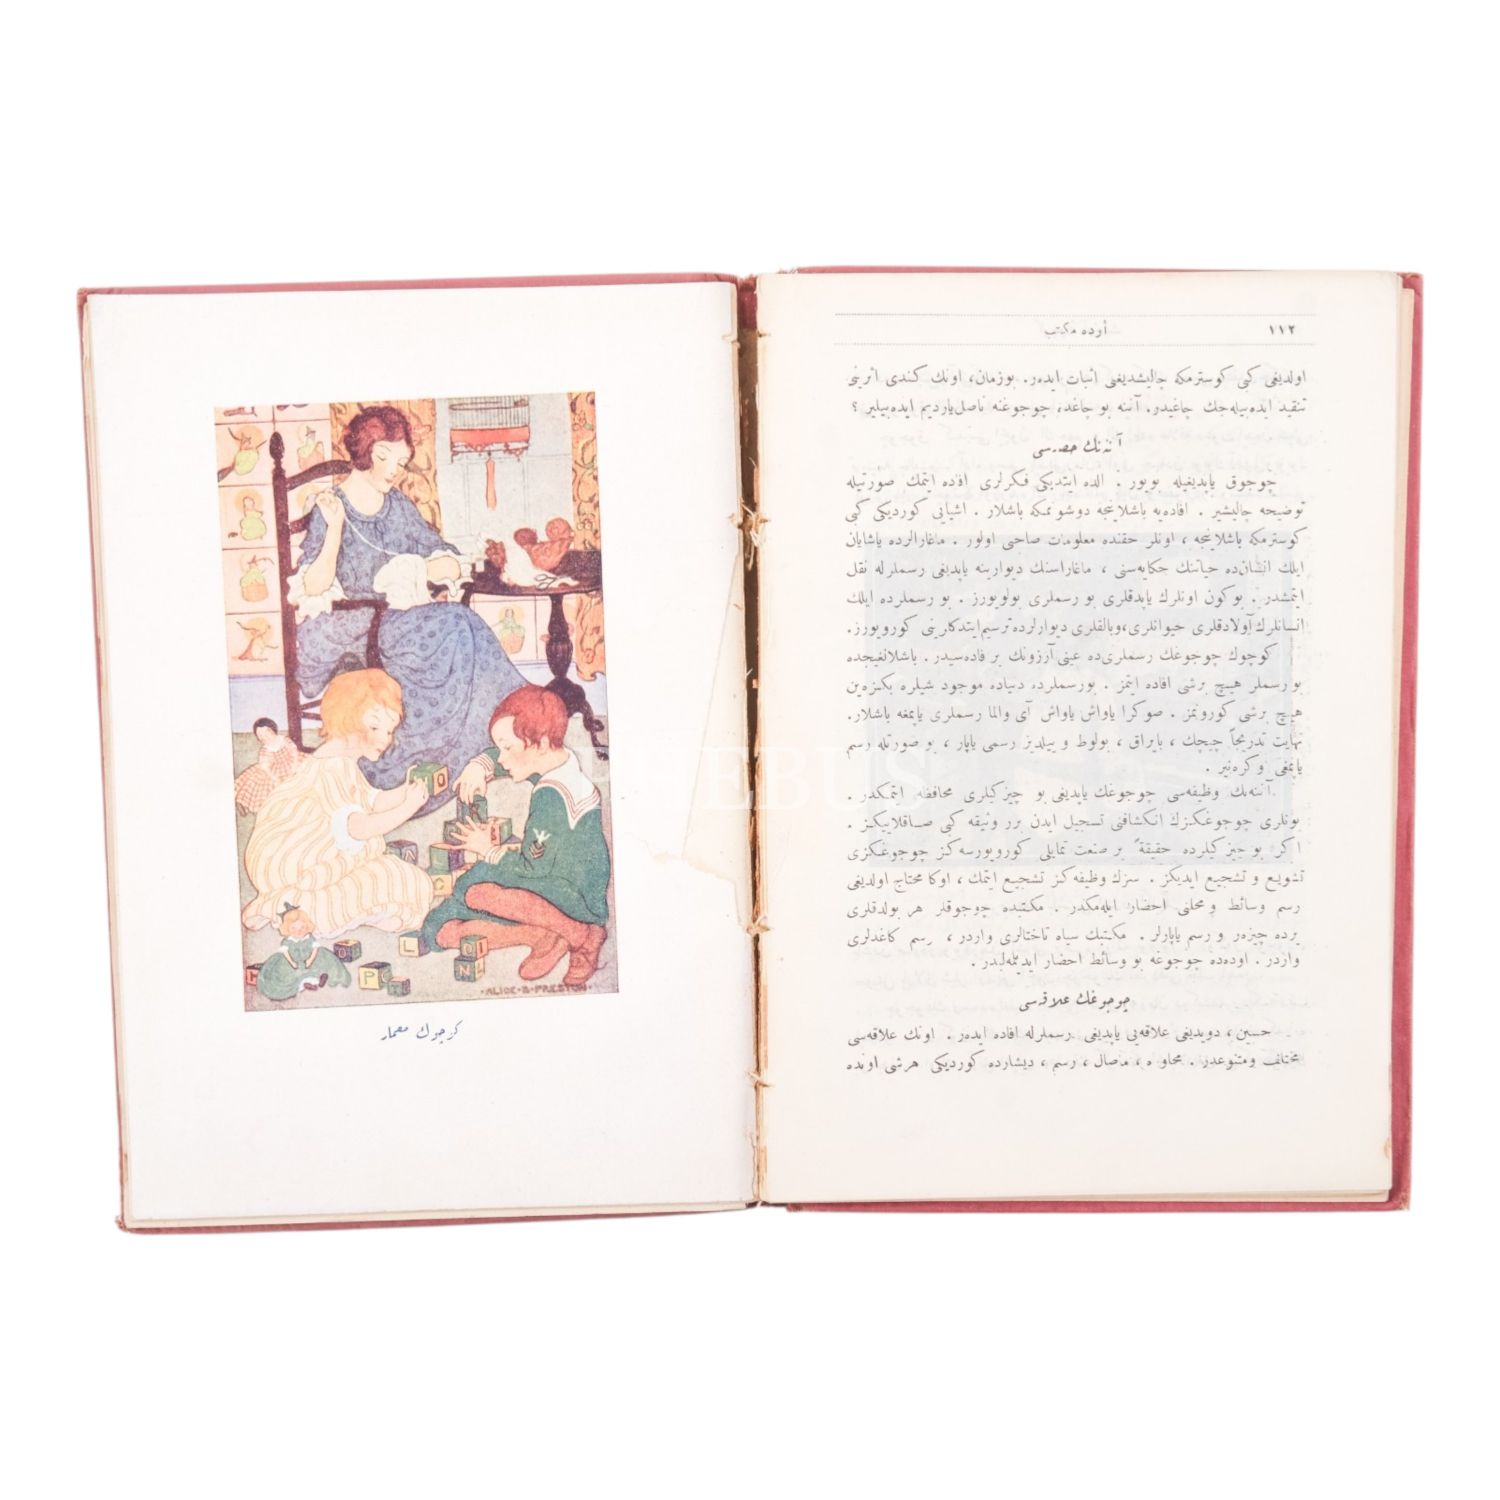 كوچوك معمار
ALICE · B · PRESTON
PHEBUS
١١٢
أوده مكتب
اولديغى كبى كوسترمكه چاليشديغى اثبات ايده‌ر. بوزمان، اونك كندى اثرينى
تنقيد ايده‌بيله‌جك چاغيدر. آننه بو چاغده، چوجوغنه ناصل‌ياردیم ايده‌بيلير ؟
آننه‌نك حصه‌سى
چوجوق ياپديغيله بويور . الده ايتديكى فكرلرى افاده ايتمك صورتيله
توضيحه چاليشير . افاده‌يه باشلاينجه دوشونمكه باشلار . اشيايى كورديكى كبى
كوسترمكه باشلاينجه ، اونلر حقنده معلومات صاحبى اولور . ماغارالرده ياشايان
ايلك انسان‌ده حياتنك حكايه‌سنى ، ماغاراسنك ديوارينه ياپديغى رسملرله نقل
ايتمشدر . بوكون اونلرك ياپدقلرى بو رسملرى بولويورز . بو رسملرده ايلك
انسانلرك آولادقلرى حيوانلرى، وبالقلرى ديوارلرده ترسيم ايتدكلرينى كورويورز.
كوچوك چوجوغك رسملرى‌ده عينى آرزونك بر افاده‌سيدر . باشلانغيجده
بو رسملر هيچ برشى افاده ايتمز . بورسملرده دنياده موجود شيلره بكزه‌ين
هيچ برشى كورونمز . صوكرا ياواش ياواش آى والما رسملرى ياپمغه باشلار.
نهايت تدريجاً چيچك ، بايراق ، بولوط و ييلديز رسمى ياپار ، بو صورتله رسم
ياپمغى اوكره‌نير .
آننه‌نك وظيفه‌سى چوجوغك ياپديغى بو چيزكيلرى محافظه ايتمكدر .
بونلرى چوجوغكزك انكشافنى تسجيل ايدن برر وثيقه كبى صاقلاييكز .
اكر بو چيزكيلرده حقيقةً بر صنعت تمايلى كورويورسه‌كز چوجوغكزى
تشويق و تشجيع ايديكز . سزك وظيفه‌كز تشجيع ايتمك ، اوكا محتاج اولديغى
رسم وسائط و محلنى احضار ايله‌مكدر . مكتبده چوجوقلر هر بولدقلرى
يرده چيزه‌ر و رسم ياپارلر . مكتبك سياه تاختالرى واردر ، رسم كاغدلرى
واردر . اوده‌ده چوجوغه بو وسائط احضار ايديله‌لدر .
چوجوغك علاقه‌سى
حسين ، دويديغى علاقه‌يى ياپديغى رسملرله افاده ايده‌ر . اونك علاقه‌سى
مختلف ومتنوعدر . محاوره ، ماصال ، رسم ، ديشارده كورديكى هرشى اونده